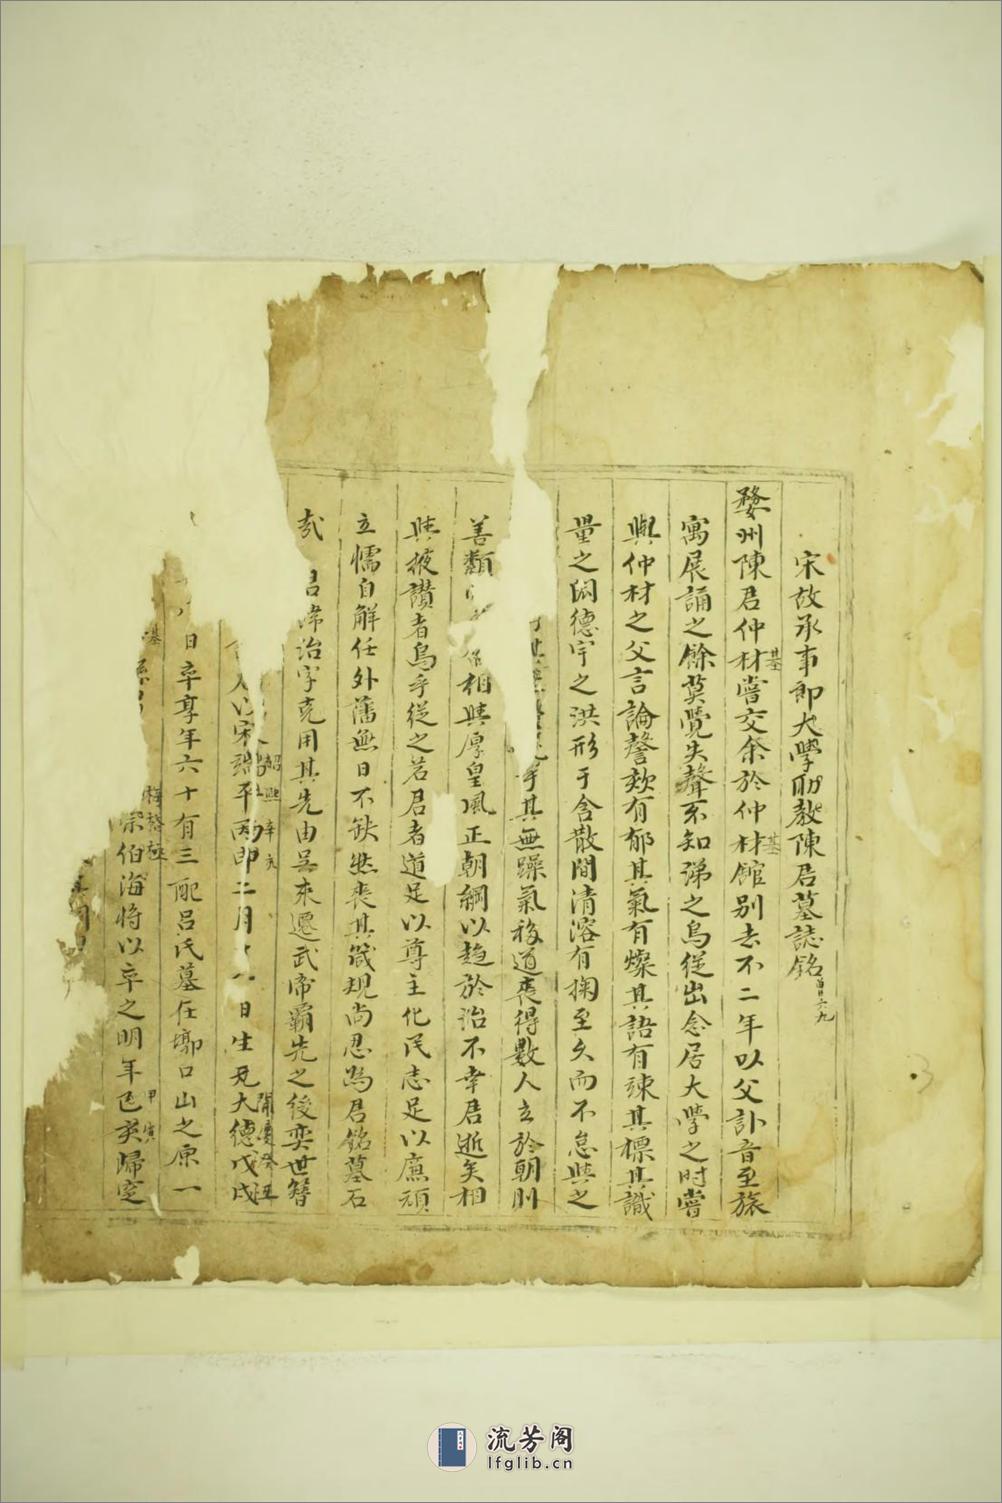 宋故承事郎大學助教陳居墓誌銘
婺州陳君仲材嘗交余於仲材館别去不二年以父訃音至旅
寓展誦之餘莫覺失聲不知涕之烏從出念居大學之时嘗
與仲材之父言論謦欬有郁其氣有燦其語有竦其標其識
量之闳德宇之洪形于含散間清溶有掬至久而不怠與之
乎其無躁氣移道喪得數人立於朝則
善類相與厚皇風正朝綱以趋於治不幸居逝矣相
與掖讚者烏乎從之若君者道足以尊主化民志足以廉頑
立懦自解任外藩無日不缺然喪其箴規尚忍爲居銘墓石
哉諱治字克用其先由吴來遷武帝霸先之後奕世簪
以宋端平丙二月日生大德戊戌
日卒享年六十有三配呂氏墓在鄉口山之原一
宗伯海将以卒之明年己亥歸窆
流芳阁
lfglib.cn